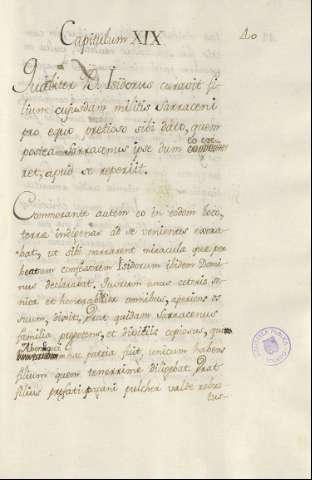 Capitulum XIX
40
Qualiter B. Isidorus curavit fi-
lium cujusdam militis Sarraceni
pro equo pretioso sibi dato, quem
postea Sarracenus ipse dum
ret, apud se reperiit.
Commorante autem eo in eodem loco,
terræ indigenas ad se venientes exora-
bat, ut sibi narrarent miracula quæ per
beatum confessorem Isidorum ibidem Domi-
nus declarabat. Quorum unus ceteris
omnibus, aperiens os
suum, dixit. Erat quidam Sarracenus
familia prepotens, et divitiis copiosus,
patria fuit, unicum habens
filium quem tenerrime diligebat. Erat
filius prefati pagani pulcher valde robus-
tus-